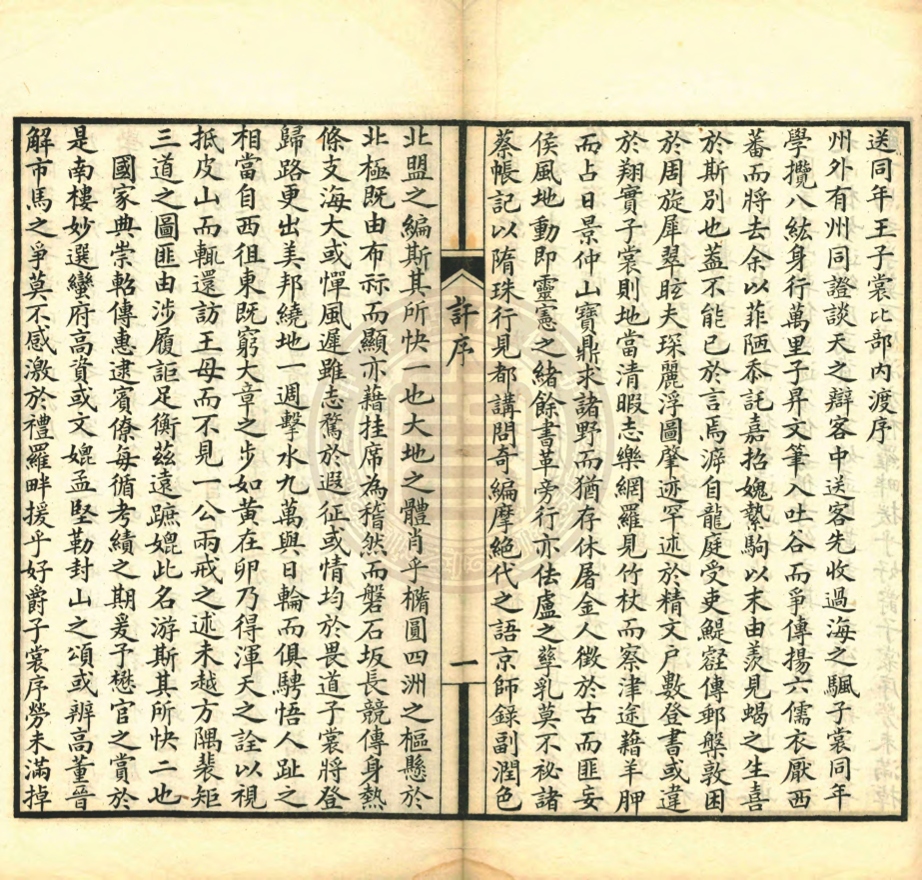 送同年王子裳比部內渡序
州外有州同證談天之辯客中送客先收過海之颿子裳同年
學攬八紘身行萬里子昇文筆入吐谷而爭傳揚六儒衣厭西
蕃而將去余以菲陋忝託嘉招媿縶駒以末由羨見蝎之生喜
於斯別也葢不能已於言焉澼自龍庭受吏鯷壑傳郵槃敦困
於周旋犀翠眩夫琛麗浮圖肇迹罕述於精文戶數登書或違
於翔實子裳則地當清暇志樂網羅見竹杖而察津途藉羊胛
而占日景仲山寶鼎求諸野而猶存休屠金人徵於古而匪妄
侯風地動即靈憲之緒餘書革旁行亦佉盧之孳乳莫不祕諸
蔡帳記以隋珠行見都講問奇編摩絕代之語京師錄副潤色
許序
一
北盟之編斯其所快一也大地之體肖乎橢圓四洲之樞懸於
北極既由布祘而顯亦藉挂席為稽然而磐石坂長競傳身熱
條支海大或憚風遲雖志騖於遐征或情均於畏道子裳將登
歸路更出美邦繞地一週擊水九萬與日輪而俱騁悟人趾之
相當自西徂東既窮大章之步如黃在卵乃得渾天之詮以視
抵皮山而輒還訪王母而不見一公兩戒之述未越方隅裴矩
三道之圖匪由涉履詎足衡茲遠蹠媲此名游斯其所快二也
國家典崇軺傳惠逮賓僚每循考績之期爰予懋官之賞於
是南樓妙選蠻府高資或文媲孟堅勒封山之頌或辨高董晉
解市馬之爭莫不感激於禮羅畔援乎好爵子裳序勞未滿掉